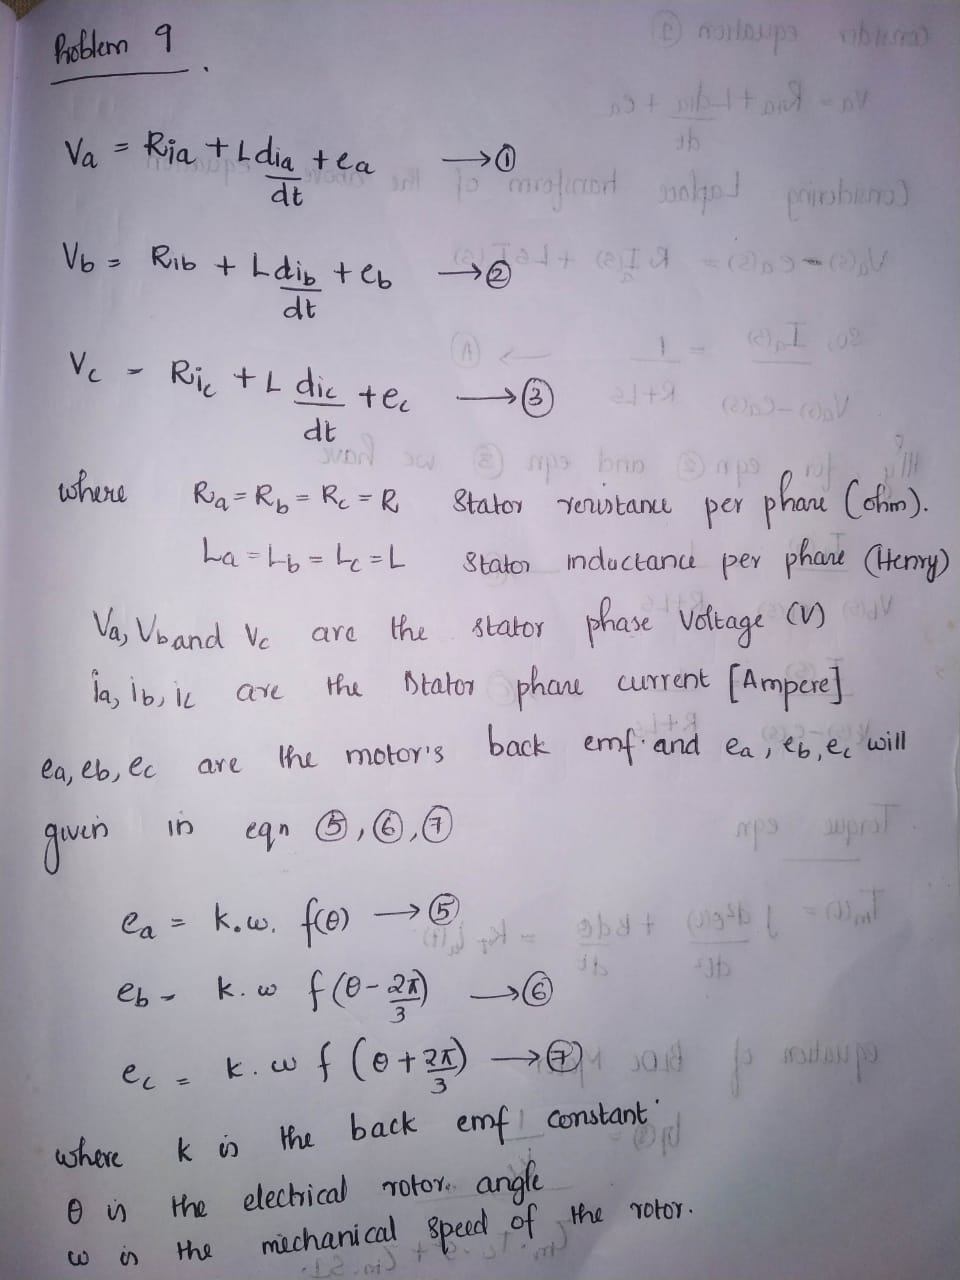 Problem 9
Va = Ria + L dia/dt + ea → ①
Vb = Rib + L dib/dt + eb → ②
Vc - Ric + L dic/dt + ec → ③
where Ra = Rb = Rc = R Stator resistance per phase (ohm).
La = Lb = Lc = L Stator inductance per phase (Henry)
Va, Vb and Vc are the stator phase Voltage (V)
ia, ib, ic are the Stator phase current [Ampere]
ea, eb, ec are the motor's back emf and ea, eb, ec will
given in eqn ⑤, ⑥, ⑦
ea = k.w. f(θ) → ⑤
eb - k.w f(θ - 2π/3) → ⑥
ec = k.w f(θ + 2π/3) → ⑦
where k is the back emf constant.
θ is the electrical rotor angle
w is the mechanical speed of the rotor.